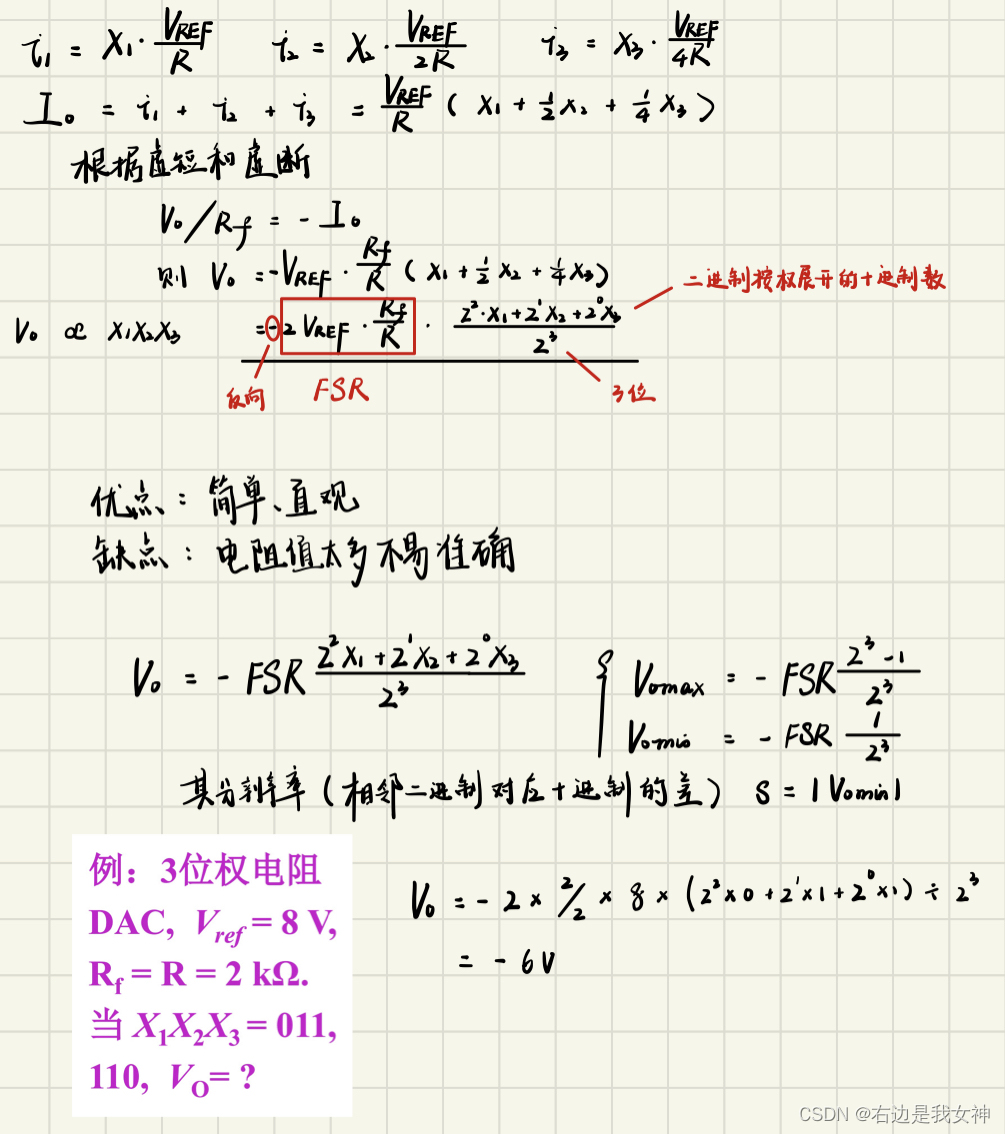 i₁ = X₁ · V_REF/R    i₂ = X₂ · V_REF/2R    i₃ = X₃ · V_REF/4R
I₀ = i₁ + i₂ + i₃ = V_REF/R ( X₁ + 1/2 X₂ + 1/4 X₃ )
根据虚短和虚断
V₀/Rf = - I₀
则 V₀ = -V_REF · Rf/R ( X₁ + 1/2 X₂ + 1/4 X₃ )
二进制按权展开的十进制数
V₀ ∝ X₁X₂X₃    = -2 V_REF · Rf/R · (2²·X₁+2¹X₂+2⁰X₃)/2³
反向    FSR    3位
优点：简单、直观
缺点：电阻值太多不易准确
V₀ = - FSR (2²X₁+2¹X₂+2⁰X₃)/2³    { Vomax = - FSR (2³-1)/2³
Vomin = - FSR 1/2³
其分辨率（相邻二进制对应十进制的差） S = |Vomin|
例：3位权电阻
DAC, V_ref = 8 V,
R_f = R = 2 kΩ.
当 X₁X₂X₃ = 011,
110, V_O = ?
V₀ = - 2 × 2/2 × 8 × (2²×0+2¹×1+2⁰×1) ÷ 2³
= - 6V
CSDN @右边是我女神